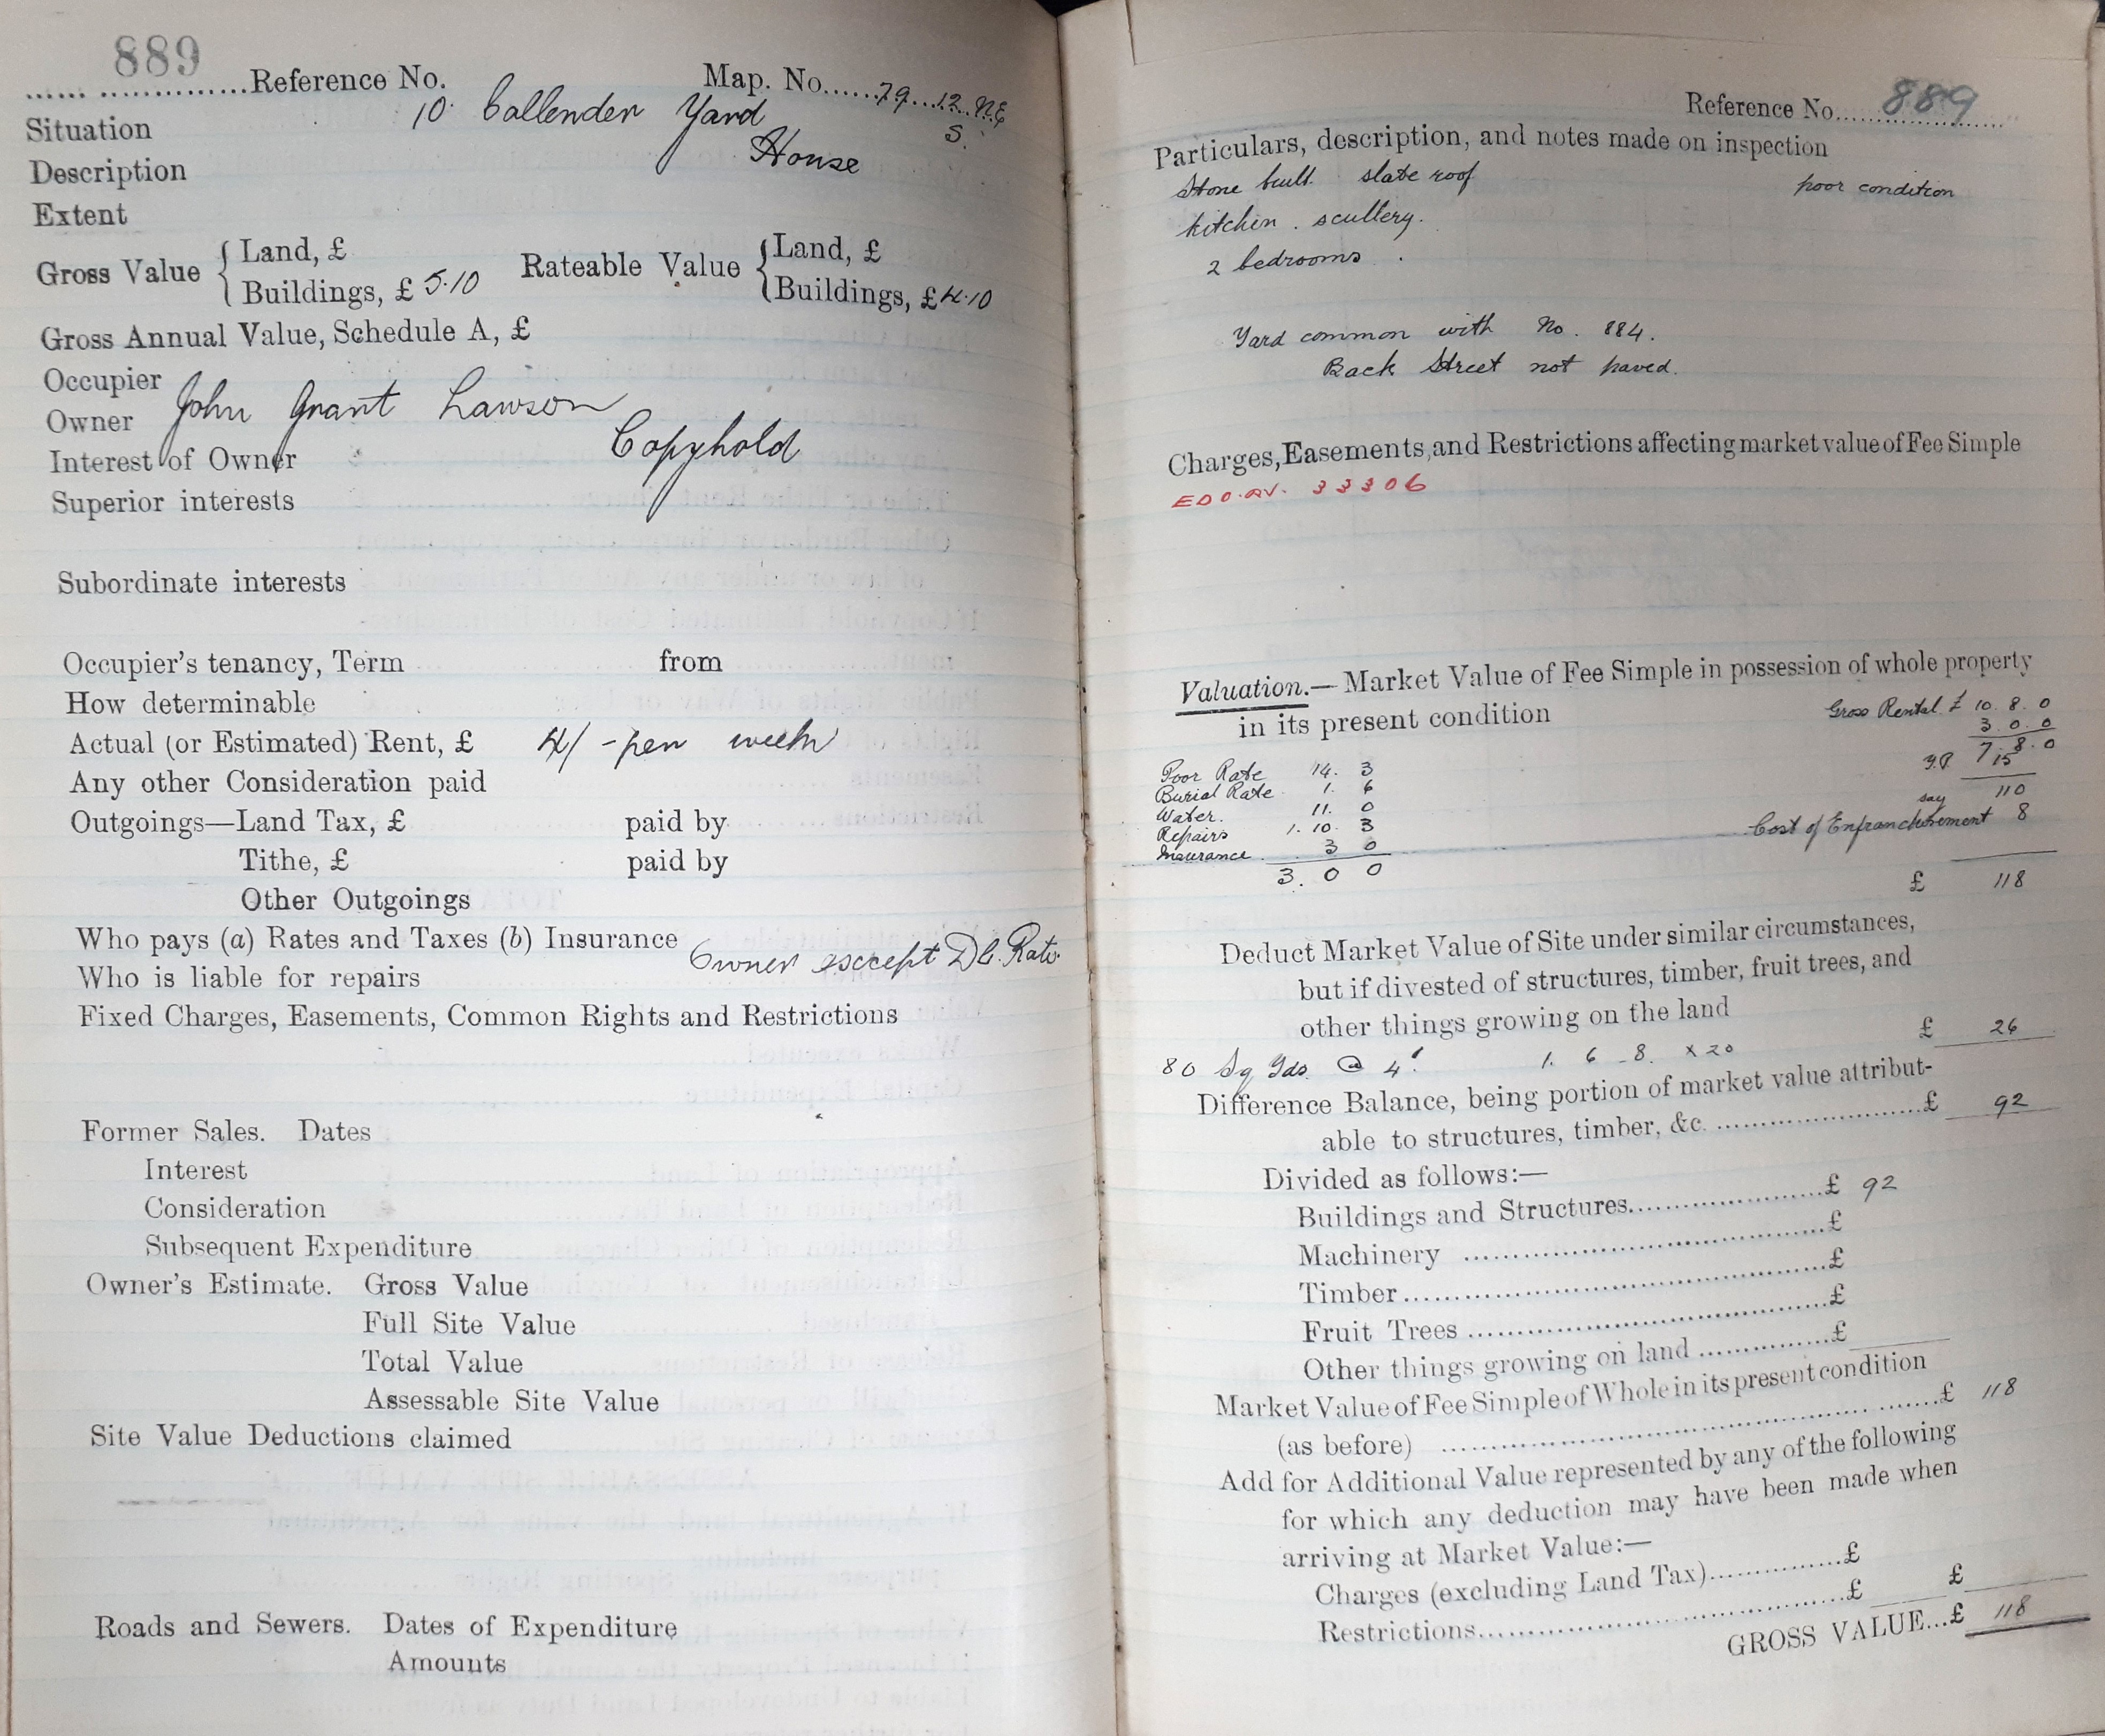 889
Reference No. Map. No. 79 12 NE
S.
Situation 10 Callender Yard
Description House
Extent
Gross Value { Land, £
Buildings, £ 5.10
Rateable Value { Land, £
Buildings, £ 4.10
Gross Annual Value, Schedule A, £
Occupier
Owner John Grant Lawson
Interest of Owner Copyhold
Superior interests
Subordinate interests
Occupier's tenancy, Term from
How determinable
Actual (or Estimated) Rent, £ 4/- per week
Any other Consideration paid
Outgoings—Land Tax, £ paid by
Tithe, £ paid by
Other Outgoings
Who pays (a) Rates and Taxes (b) Insurance
Owner except D C. Rate.
Who is liable for repairs
Fixed Charges, Easements, Common Rights and Restrictions
Former Sales. Dates
Interest
Consideration
Subsequent Expenditure
Owner's Estimate. Gross Value
Full Site Value
Total Value
Assessable Site Value
Site Value Deductions claimed
Roads and Sewers. Dates of Expenditure
Amounts
Reference No. 889
Particulars, description, and notes made on inspection
Stone built slate roof poor condition
kitchen . scullery.
2 bedrooms .
Yard common with No. 884.
Back Street not paved.
Charges, Easements, and Restrictions affecting market value of Fee Simple
33306
Valuation.—Market Value of Fee Simple in possession of whole property
in its present condition
Gross Rental £ 10. 8. 0
3. 0. 0
7. 8. 0
Y.P. 15
say 110
Cost of Enfranchisement 8
£ 118
Poor Rate 14. 3
Burial Rate 1. 6
Water. 11. 0
Repairs 1. 10. 3
Insurance 3 0
3. 0 0
Deduct Market Value of Site under similar circumstances,
but if divested of structures, timber, fruit trees, and
other things growing on the land £ 26
80 Sq Yds @ 4d. 1. 6. 8. x 20
Difference Balance, being portion of market value attribut-
able to structures, timber, &c. £ 92
Divided as follows:—
Buildings and Structures £ 92
Machinery £
Timber £
Fruit Trees £
Other things growing on land £
Market Value of Fee Simple of Whole in its present condition
(as before) £ 118
Add for Additional Value represented by any of the following
for which any deduction may have been made when
arriving at Market Value:—
Charges (excluding Land Tax) £
Restrictions £ £
GROSS VALUE...£ 118